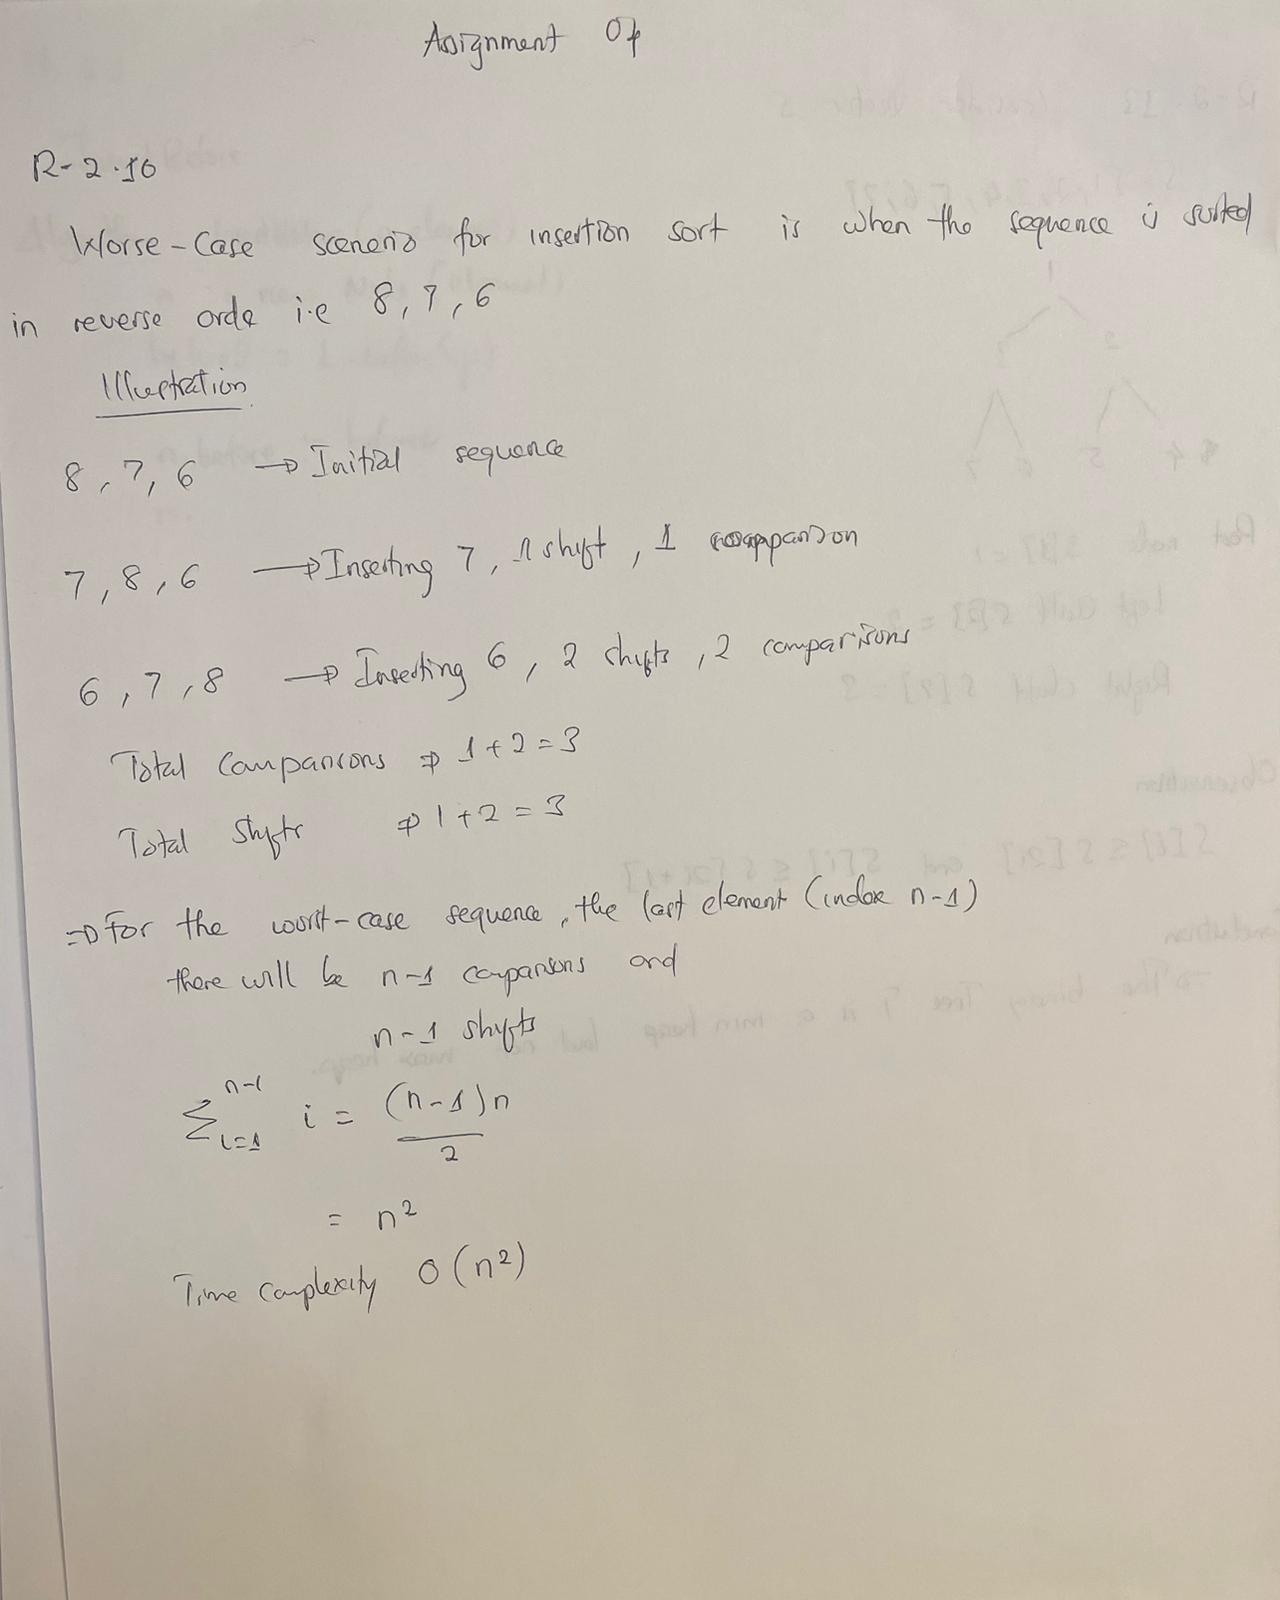 Assignment 04
R-2.10
Worse-Case scenerio for insertion sort is when the sequence is sorted
in reverse orde i.e 8, 7, 6
Illustration
8, 7, 6 → Initial sequence
7, 8, 6 → Inserting 7, 1 shift, 1 comparison
6, 7, 8 → Inserting 6, 2 shifts, 2 comparisons
Total Comparisons ⇒ 1+2=3
Total Shifts ⇒ 1+2=3
⇒ For the worst-case sequence, the last element (index n-1)
there will be n-1 comparisons and
n-1 shifts
∑ᵢ₌₁ⁿ⁻¹ i = (n-1)n / 2
= n²
Time Complexity O(n²)